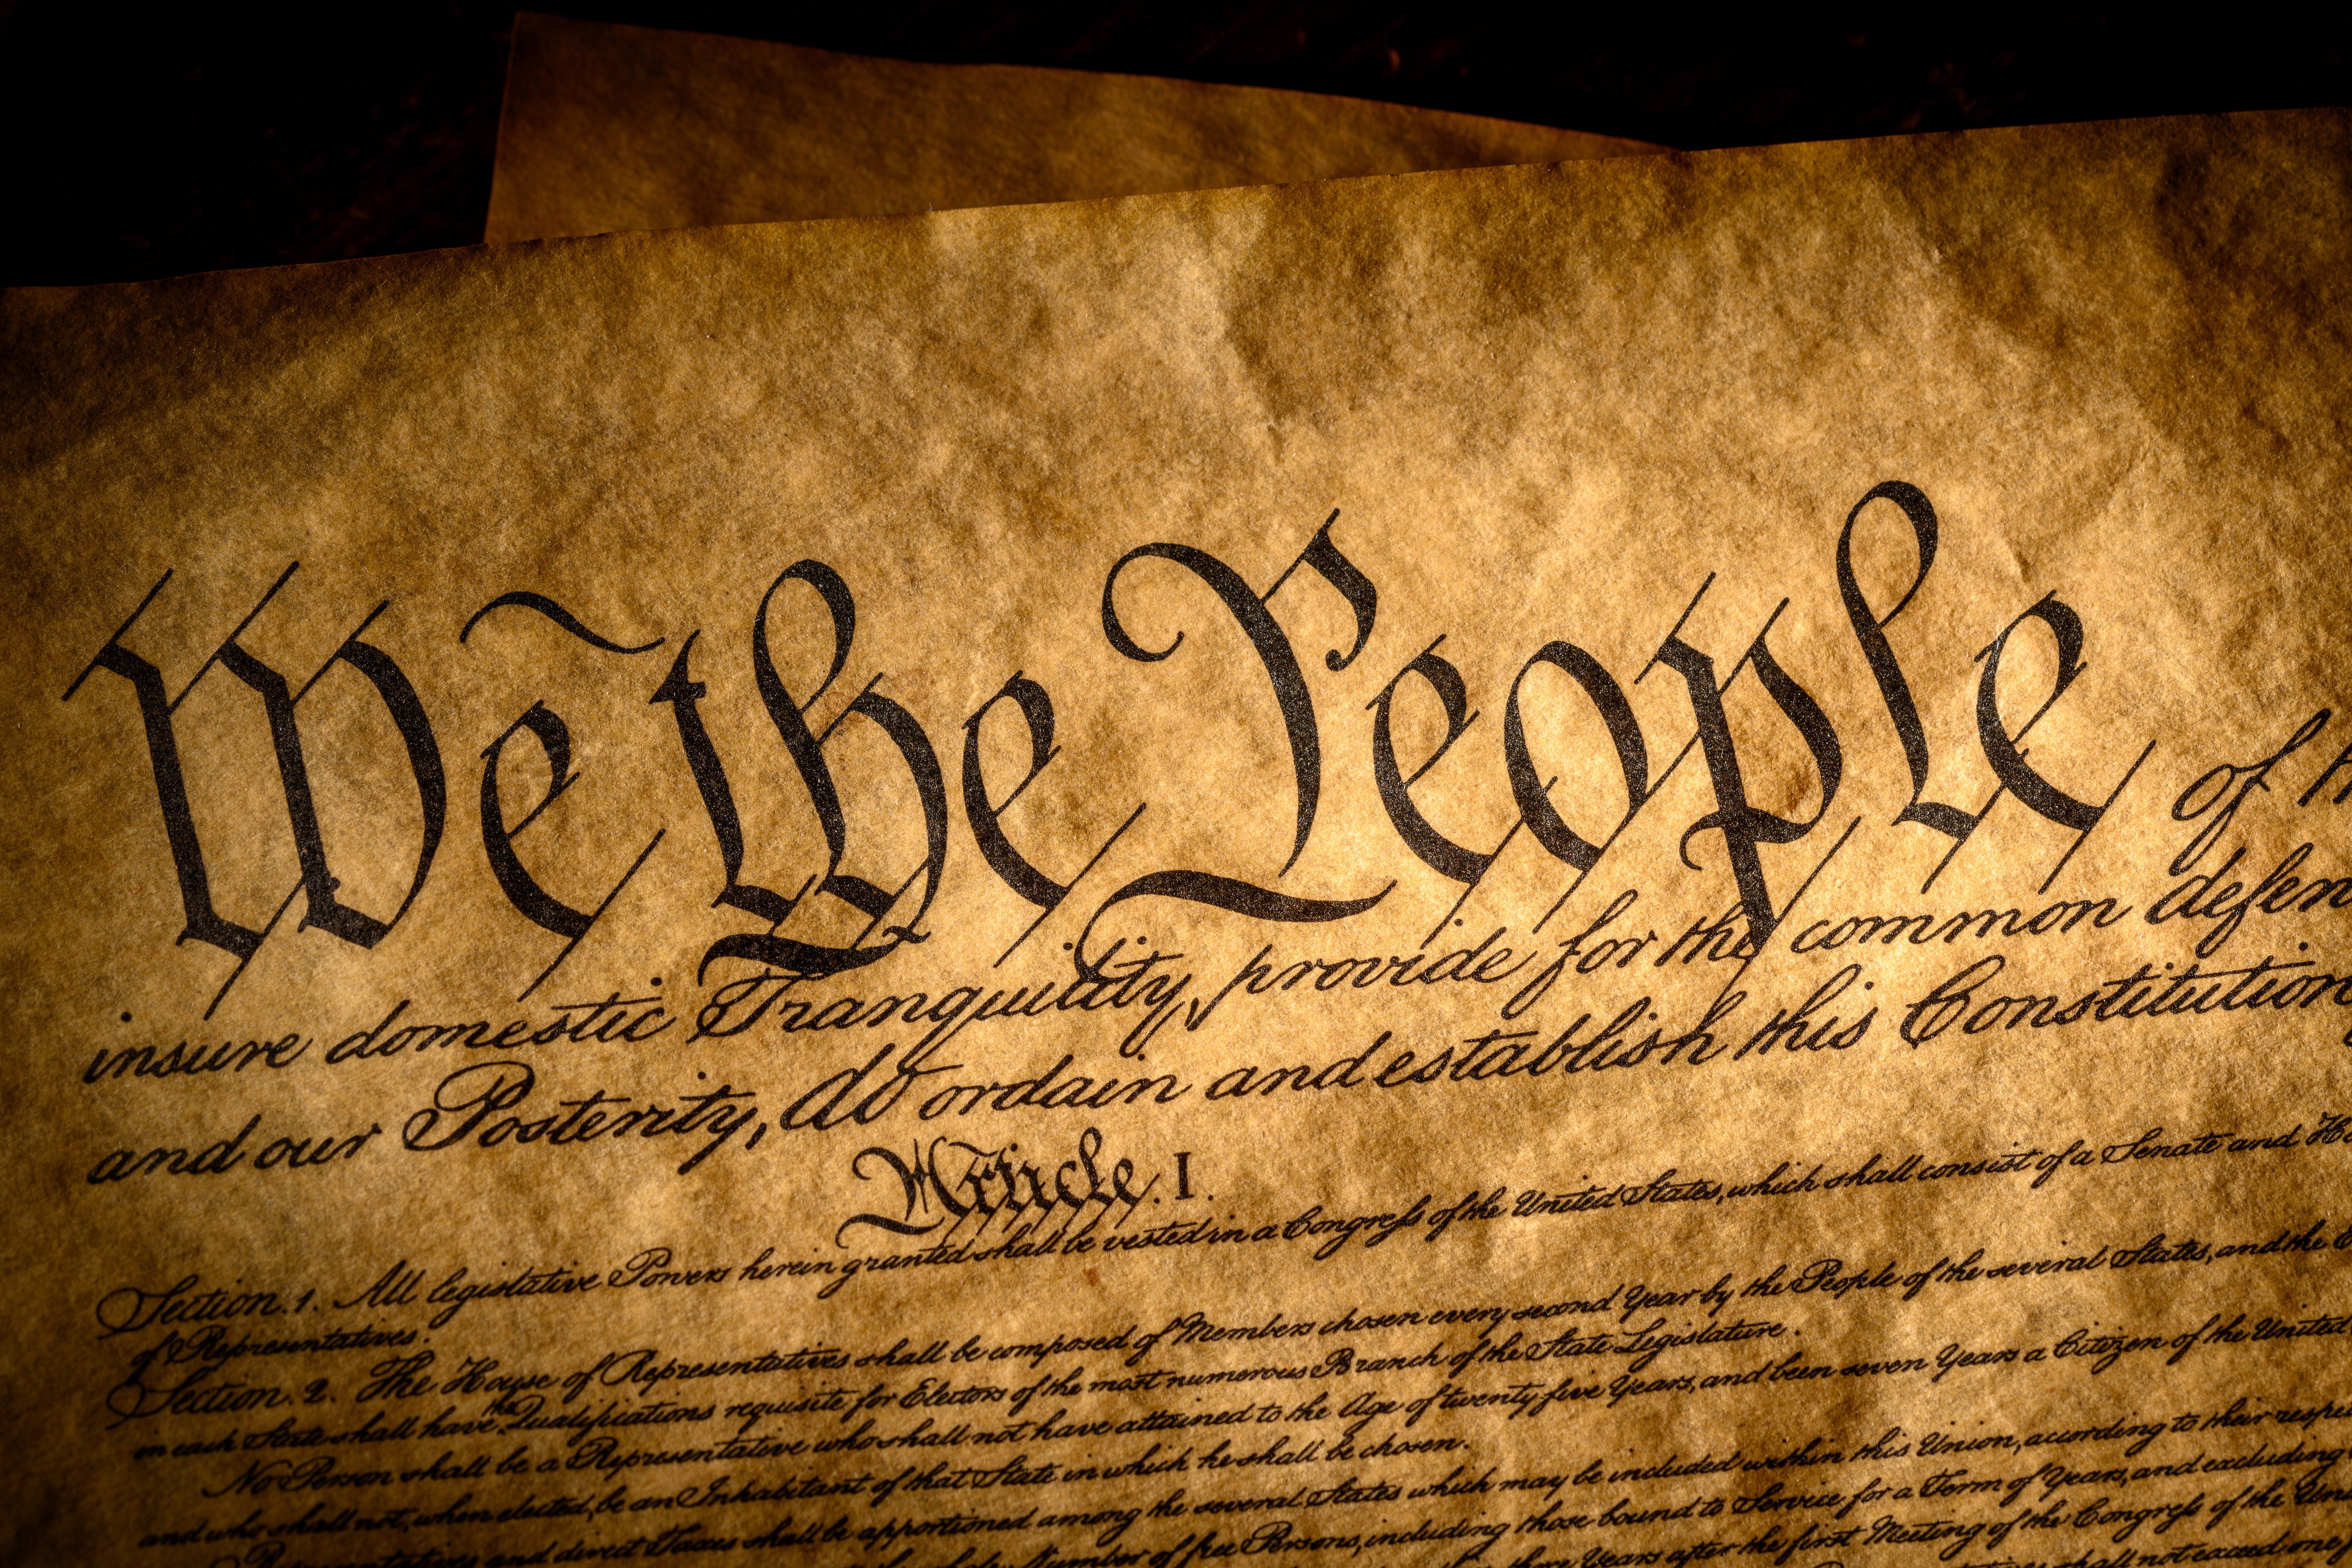 We the People of th
insure domestic Tranquility, provide for the common defen
and our Posterity, do ordain and establish this Constitution
Article. I.
Section. 1. All legislative Powers herein granted shall be vested in a Congreſs of the United States, which shall consist of a Senate and Ho
of Representatives.
Section. 2. The House of Representatives shall be composed of Members chosen every second Year by the People of the several States, and the E
in each State shall have the Qualifications requisite for Electors of the most numerous Branch of the State Legislature.
No Person shall be a Representative who shall not have attained to the Age of twenty five Years, and been seven Years a Citizen of the United
and who shall not, when elected, be an Inhabitant of that State in which he shall be chosen.
Representatives and direct Taxes shall be apportioned among the several States which may be included within this Union, according to their respe
whole Number of free Persons, including those bound to Service for a Term of Years, and excluding
three Years after the first Meeting of the Congreſs of the Un
shall not exceed one